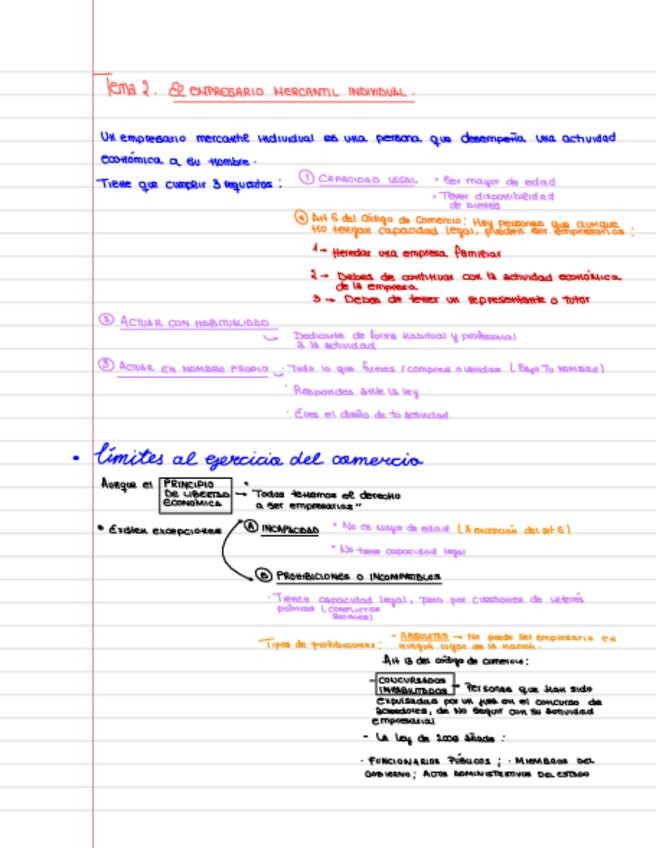 Tema 2. El EMPRESARIO MERCANTIL INDIVIDUAL.
Un empresario mercantil individual es una persona que desempeña una actividad
económica a su nombre.
Tiene que cumplir 3 requisitos: ① CAPACIDAD LEGAL • Ser mayor de edad
• Tener disponibilidad
de bienes
Art 5 del Código de Comercio: Hay personas que aunque
no tengan capacidad legal, pueden ser empresarios:
1→ Heredar una empresa familiar
2 → Debes de continuar con la actividad económica
de la empresa
3 → Debes de tener un representante o tutor
② ACTUAR CON HABITUALIDAD
Dedicarte de forma habitual y profesional
a la actividad
③ ACTUAR EN NOMBRE PROPIO · Todo lo que firmes/compres o vendas (Bajo Tu NOMBRE)
· Respondes ante la ley
· Eres el dueño de tu actividad
• límites al ejercicio del comercio
Aunque el PRINCIPIO
DE LIBERTAD
ECONÓMICA → "Todos tenemos el derecho
a ser empresarios"
• Existen excepciones Ⓐ INCAPACIDAD • No es mayor de edad (A excepción del art 5)
• No tiene capacidad legal
Ⓑ PROHIBICIONES O INCOMPATIBLES
· Tienen capacidad legal, pero por cuestiones de interés
público (CONFLICTOS
Tipos de prohibiciones: - ABSOLUTAS → No puede ser empresario en
ningún lugar de la nación.
Art 13 del código de comercio:
- CONCURSADOS
INHABILITADOS → Personas que han sido
expulsadas por un juez en el concurso de
acreedores, de NO seguir con su actividad
empresarial
- La ley de 2006 añade:
· FUNCIONARIOS PÚBLICOS; · MIEMBROS DEL
GOBIERNO; ALTOS ADMINISTRATIVOS DEL ESTADO